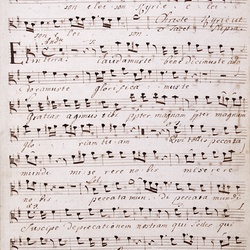 son elei son Kyrie e lei
Christe Kyrie ut
son elei son. tacet
Et in terra. laudamus te bene dicimus te ado
ramus te glorifica mus te
Gratias agimus tibi ppter magnam ppter magnam
glo riam tu am Qui tollis peccata
mundi mi se re re no bis mi se re re
no bis peccata mun di peccata mundi
Suscipe deprecationem nostram qui sedes qui